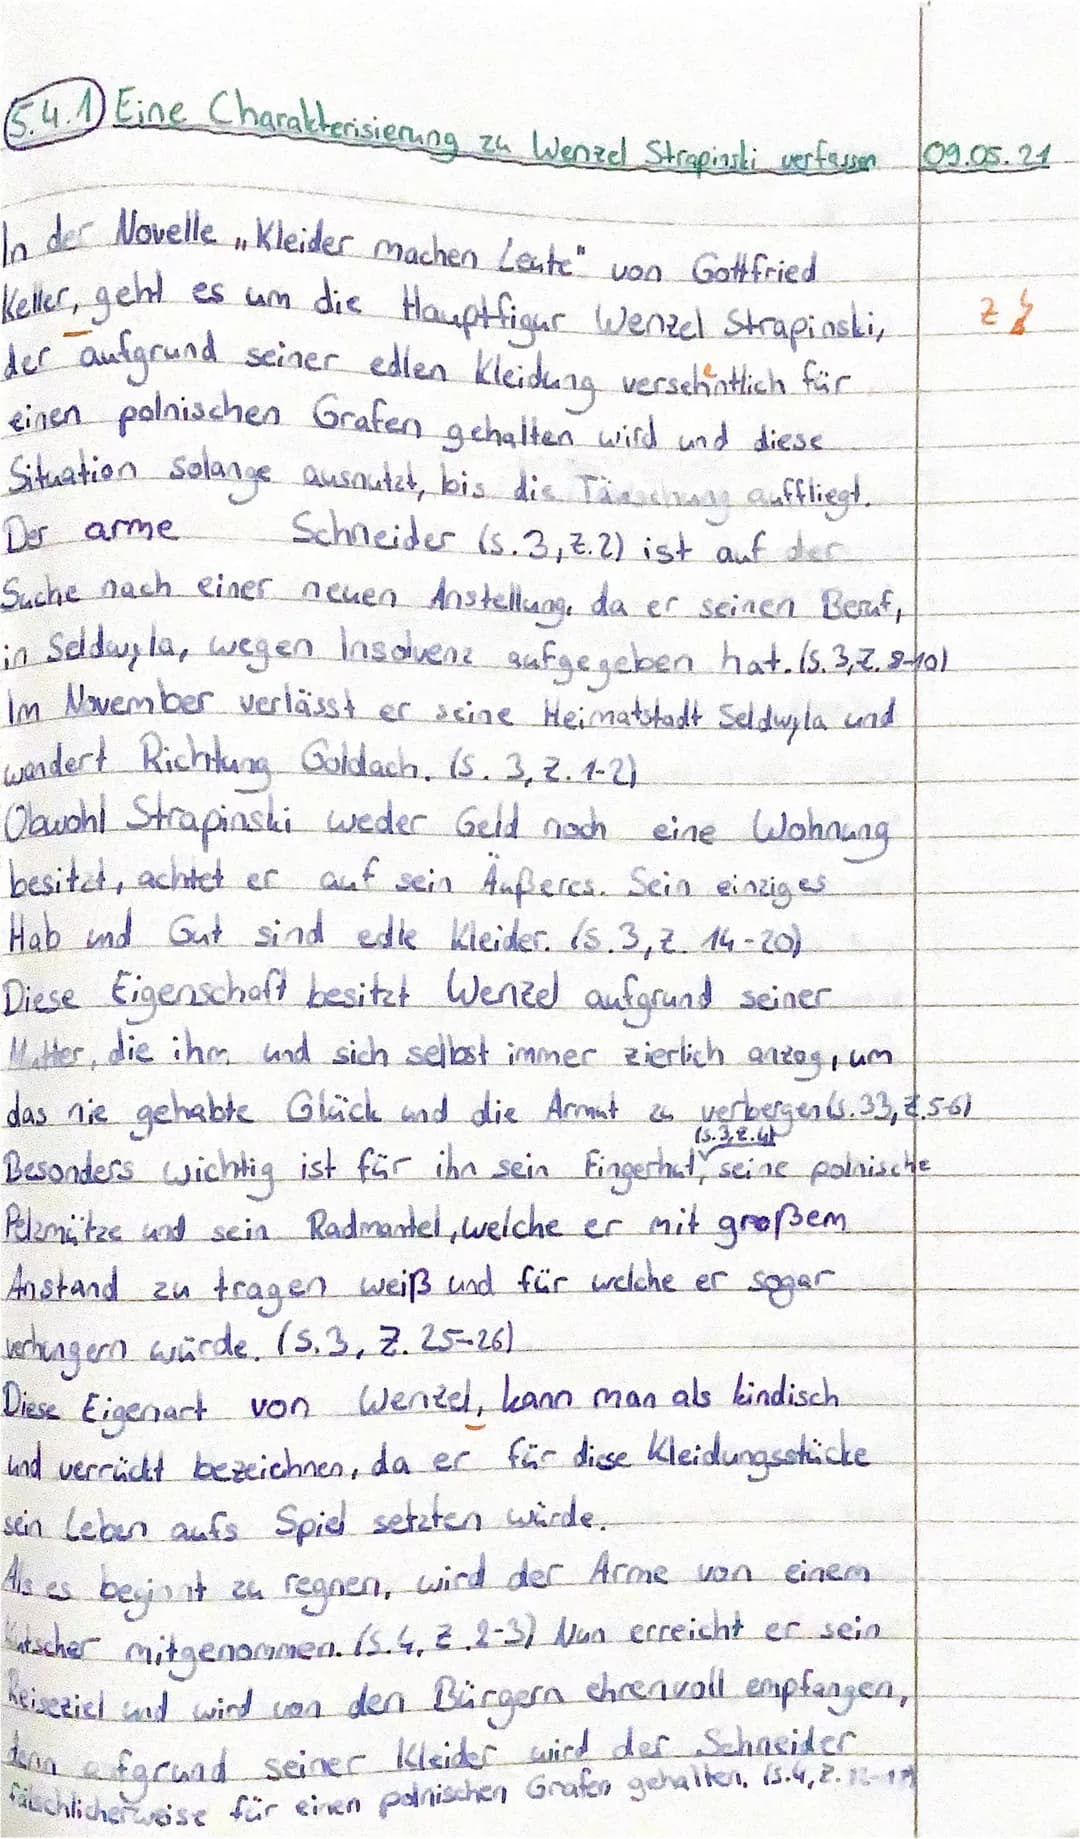 5.4.1) Eine Charakterisierung zu Wenzel Strapinski verfassen 09.05.21
In der Novelle „Kleider machen Leute" von Gottfried
Keller, geht es um die Hauptfigur Wenzel Strapinski, Z
der aufgrund seiner edlen Kleidung versehintlich für
einen polnischen Grafen gehalten wird und diese
Situation solange ausnutzt, bis die Täuschung auffliegt.
Der arme Schneider (S.3, Z.2) ist auf der
Suche nach einer neuen Anstellung, da er seinen Beruf,
in Seldwyla, wegen Insolvenz aufgegeben hat. (S.3, Z. 8-10)
Im November verlässt er seine Heimatstadt Seldwyla und
wandert Richtung Goldach. (S. 3, Z. 1-2)
Obwohl Strapinski weder Geld noch eine Wohnung
besitzt, achtet er auf sein Äußeres. Sein einziges
Hab und Gut sind edle Kleider. (S.3, Z. 14-20)
Diese Eigenschaft besitzt Wenzel aufgrund seiner
Mutter, die ihn und sich selbst immer zierlich anzog, um
das nie gehabte Glück und die Armut zu verbergen (S.33, Z.5-6)
(S.3, Z.4)
Besonders wichtig ist für ihn sein Fingerhut, seine polnische
Pelzmütze und sein Radmantel, welche er mit großem
Anstand zu tragen weiß und für welche er sogar
verhungern würde. (S.3, Z. 25-26)
Diese Eigenart von Wenzel, kann man als kindisch
und verrückt bezeichnen, da er für diese Kleidungsstücke
sein Leben aufs Spiel setzten würde.
Als es beginnt zu regnen, wird der Arme von einem
Kutscher mitgenommen. (S.4, Z.2-3) Nun erreicht er sein
Reiseziel und wird von den Bürgern ehrenvoll empfangen,
denn aufgrund seiner Kleider wird der Schneider
fälschlicherweise für einen polnischen Grafen gehalten. (S.4, Z.